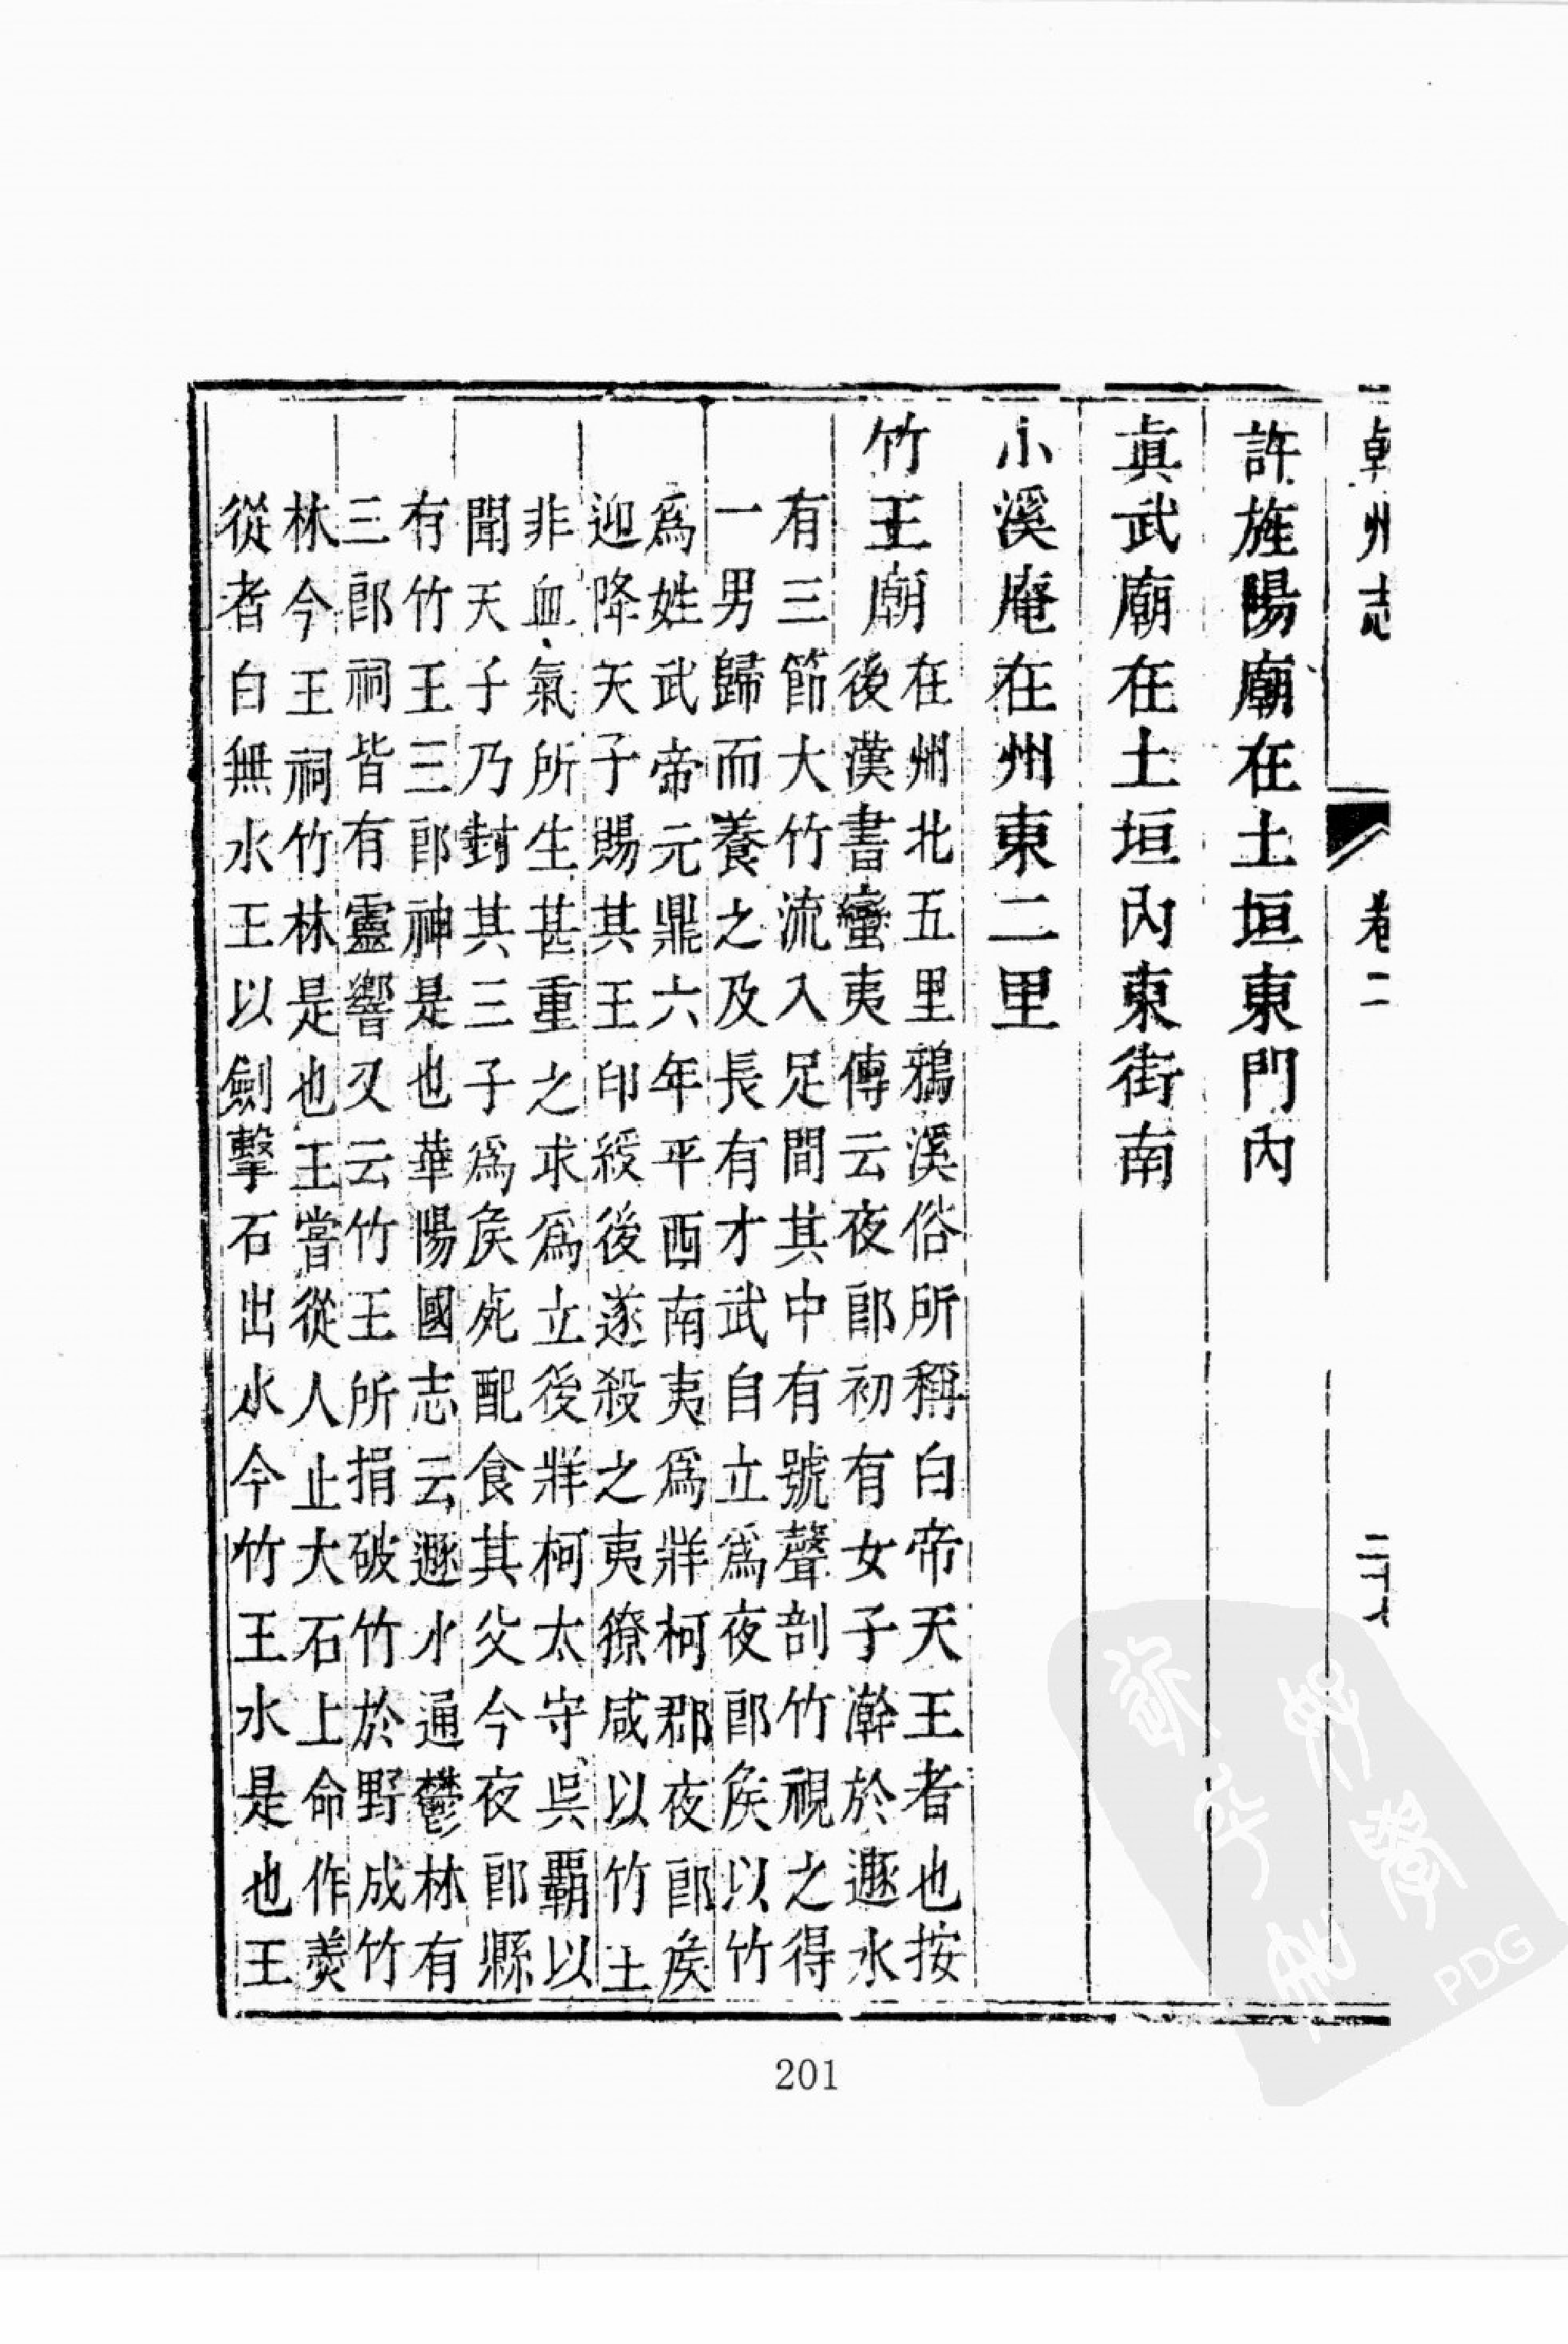 乾州志 卷二
許旌陽廟在土垣東門內
真武廟在土垣內東街南
小溪庵在州東二里
竹王廟
在州北五里鴉溪俗所稱白帝天王者也按
後漢書蠻夷傳云夜郎初有女子澣於遯水
有三節大竹流入足間其中有號聲剖竹視之得
一男歸而養之及長有才武自立為夜郎矦以竹
為姓武帝元鼎六年平西南夷為牂柯郡夜郎矦
迎降天子賜其王印綬後遂殺之夷獠咸以竹王
非血氣所生甚重之求為立後牂柯太守吳霸以
聞天子乃封其三子為矦死配食其父今夜郎縣
有竹王三郎神是也華陽國志云遯水通鬱林有
三郎祠皆有靈響又云竹王所捐破竹於野成竹
林今王祠竹林是也王嘗從人止大石上命作羹
從者白無水王以劍擊石出水今竹王水是也王
201
PDG